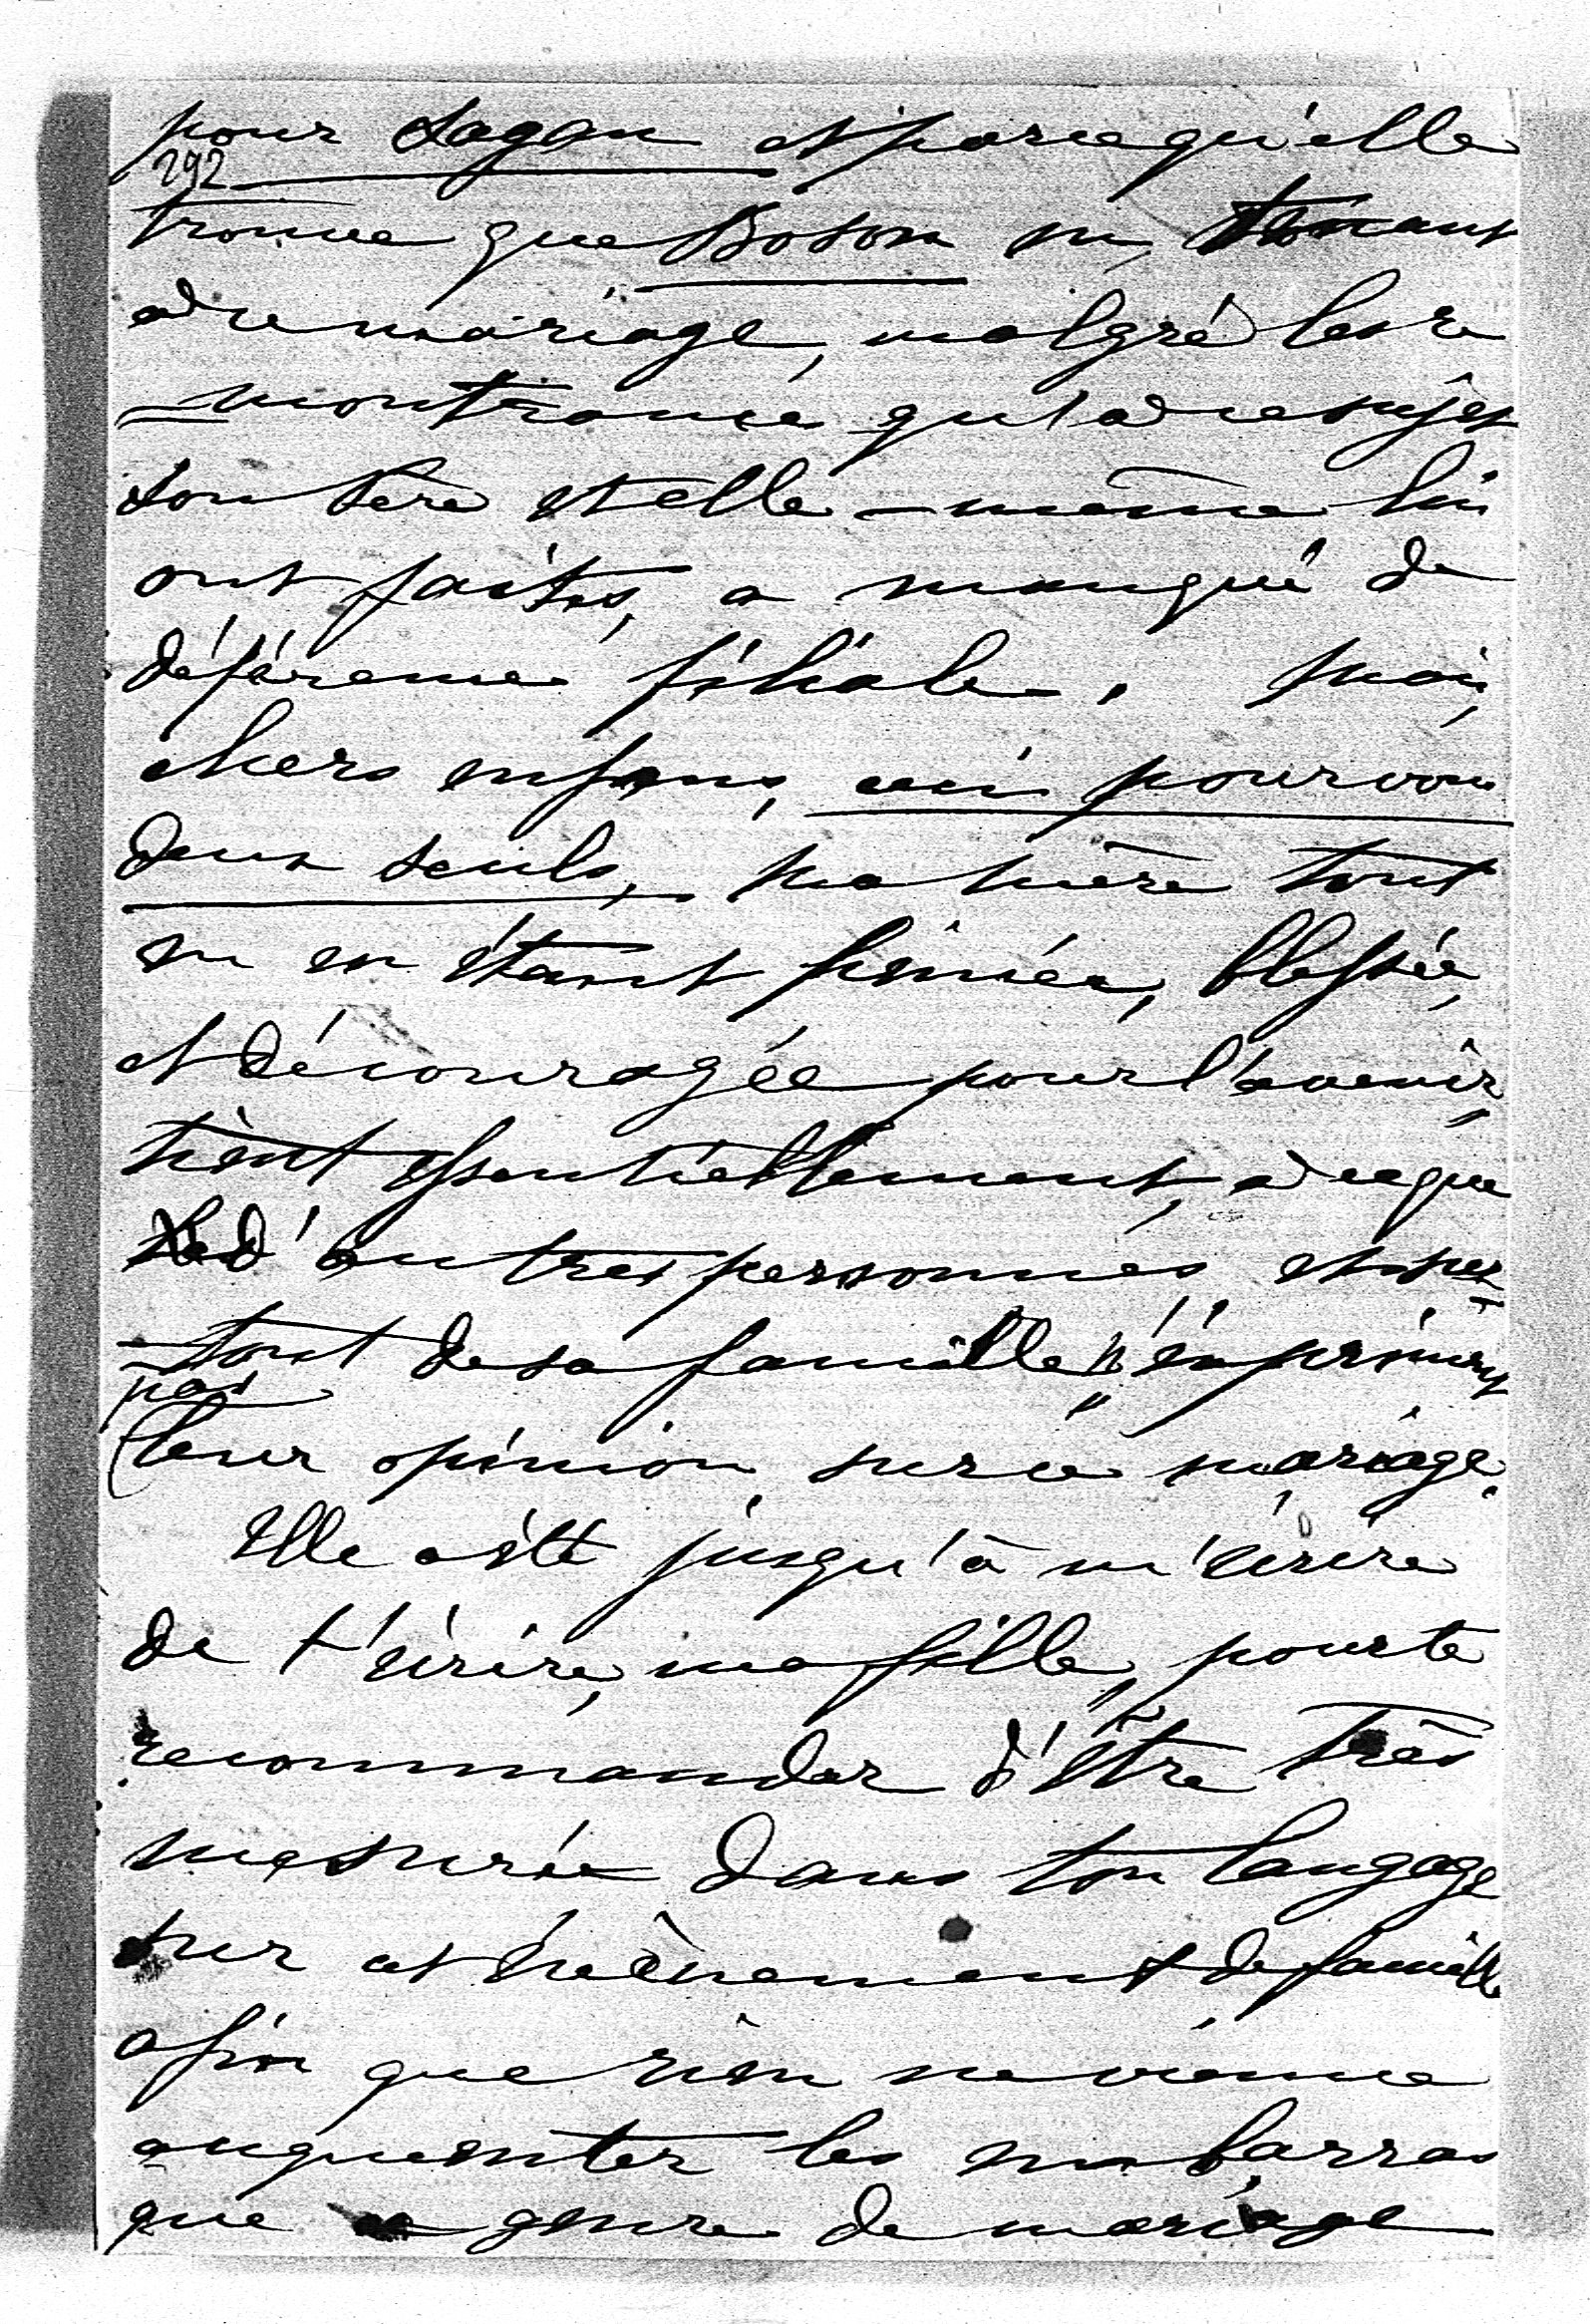 pour Sagan et parce qu'elle
292
trouve que Boson en, tenant
à ce mariage, malgré les re
=montrances qu'à ce sujet
son Père et elle-même lui
ont faites, a manqué de
déférence filiale. Mais,
chers enfans, ceci pour vous
deux seuls, ma mère tout
en en étant peinée, blessée,
et découragée pour l'avenir,
tient essentiellement, à ce que
d'autres personnes, et sur=
=tout de sa famille, n'expriment
pas
leur opinion, sur ce mariage.
Elle a été jusqu'à m'écrire
de t'écrire, ma fille, pour te
recommander d'être très
mesurée dans ton langage
sur cet évènement de famille
afin que rien ne vienne
augmenter les embarras
que genre de mariage